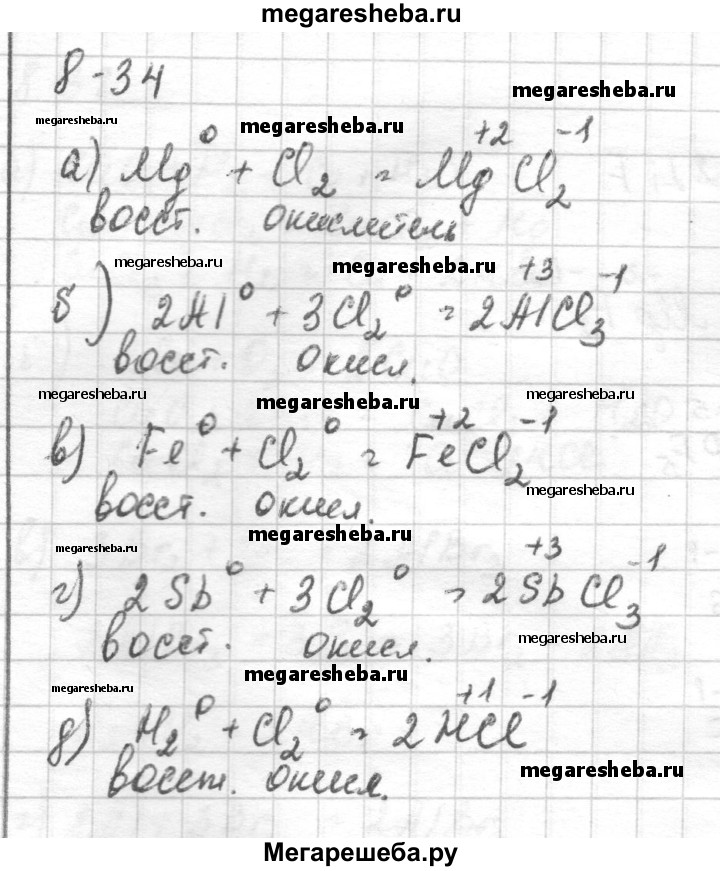 megaresheba.ru
8-34
megaresheba.ru
megaresheba.ru megaresheba.ru
+2 -1
а) Mg⁰ + Cl₂ = MgCl₂
восст. окислитель
megaresheba.ru megaresheba.ru
+3 -1
б) 2Al⁰ + 3Cl₂⁰ = 2AlCl₃
восст. окисл.
megaresheba.ru megaresheba.ru megaresheba.ru
+2 -1
в) Fe⁰ + Cl₂⁰ = FeCl₂
megaresheba.ru
восст. окисл.
megaresheba.ru megaresheba.ru
+3 -1
г) 2Sb⁰ + 3Cl₂⁰ = 2SbCl₃
megaresheba.ru
восст. окисл.
megaresheba.ru megaresheba.ru
+1 -1
д) H₂⁰ + Cl₂⁰ = 2HCl
восст. окисл.
megaresheba.ru
Мегарешеба.ру